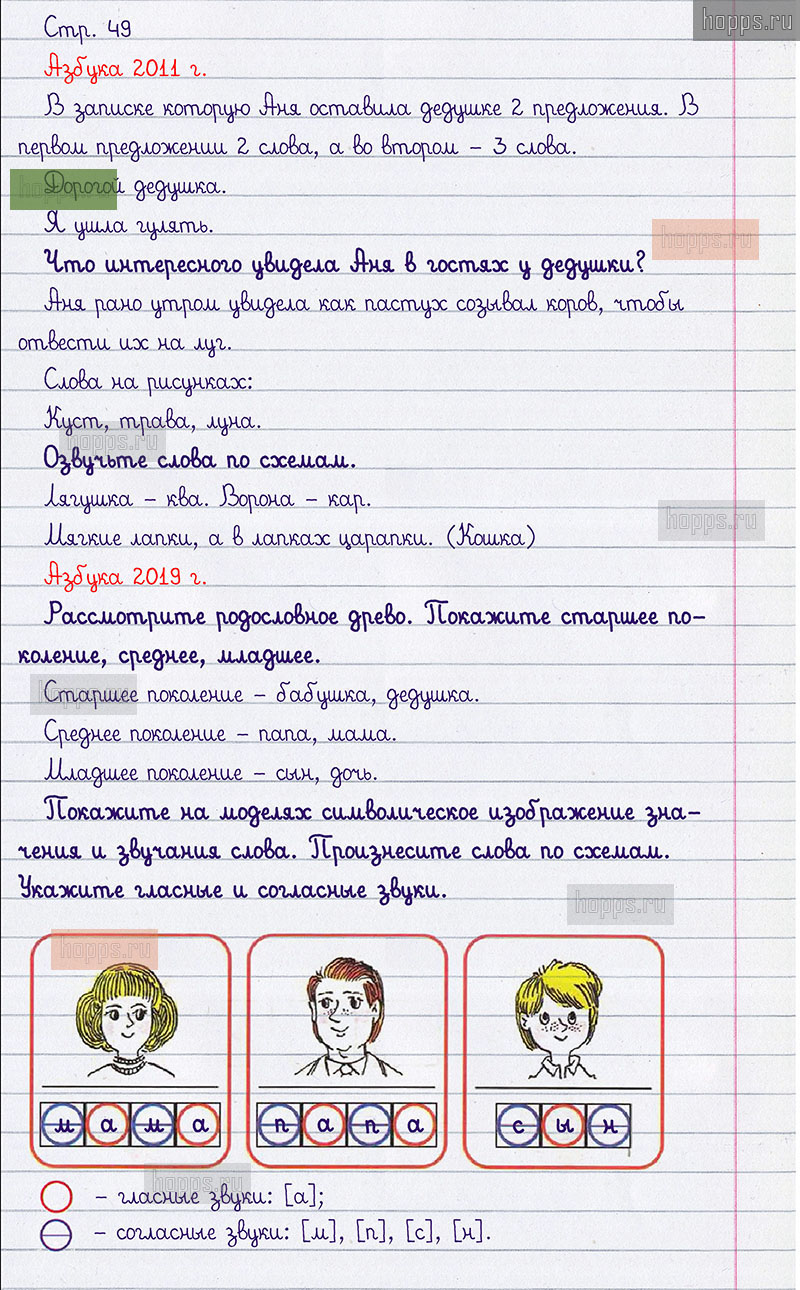 hopps.ru
Стр. 49
Азбука 2011 г.
В записке которую Аня оставила дедушке 2 предложения. В
первом предложении 2 слова, а во втором – 3 слова.
Дорогой дедушка.
Я ушла гулять.
hopps.ru
Что интересного увидела Аня в гостях у дедушки?
Аня рано утром увидела как пастух созывал коров, чтобы
отвести их на луг.
Слова на рисунках:
Куст, трава, луна.
hopps.ru
Озвучьте слова по схемам.
Лягушка – ква. Ворона – кар.
hopps.ru
Мягкие лапки, а в лапках царапки. (Кошка)
Азбука 2019 г.
Рассмотрите родословное древо. Покажите старшее по-
коление, среднее, младшее.
Старшее поколение – бабушка, дедушка.
Среднее поколение – папа, мама.
Младшее поколение – сын, дочь.
Покажите на моделях символическое изображение зна-
чения и звучания слова. Произнесите слова по схемам.
Укажите гласные и согласные звуки.
hopps.ru
hopps.ru
м а м а п а п а с ы н
hopps.ru
– гласные звуки: [а];
– согласные звуки: [м], [п], [с], [н].